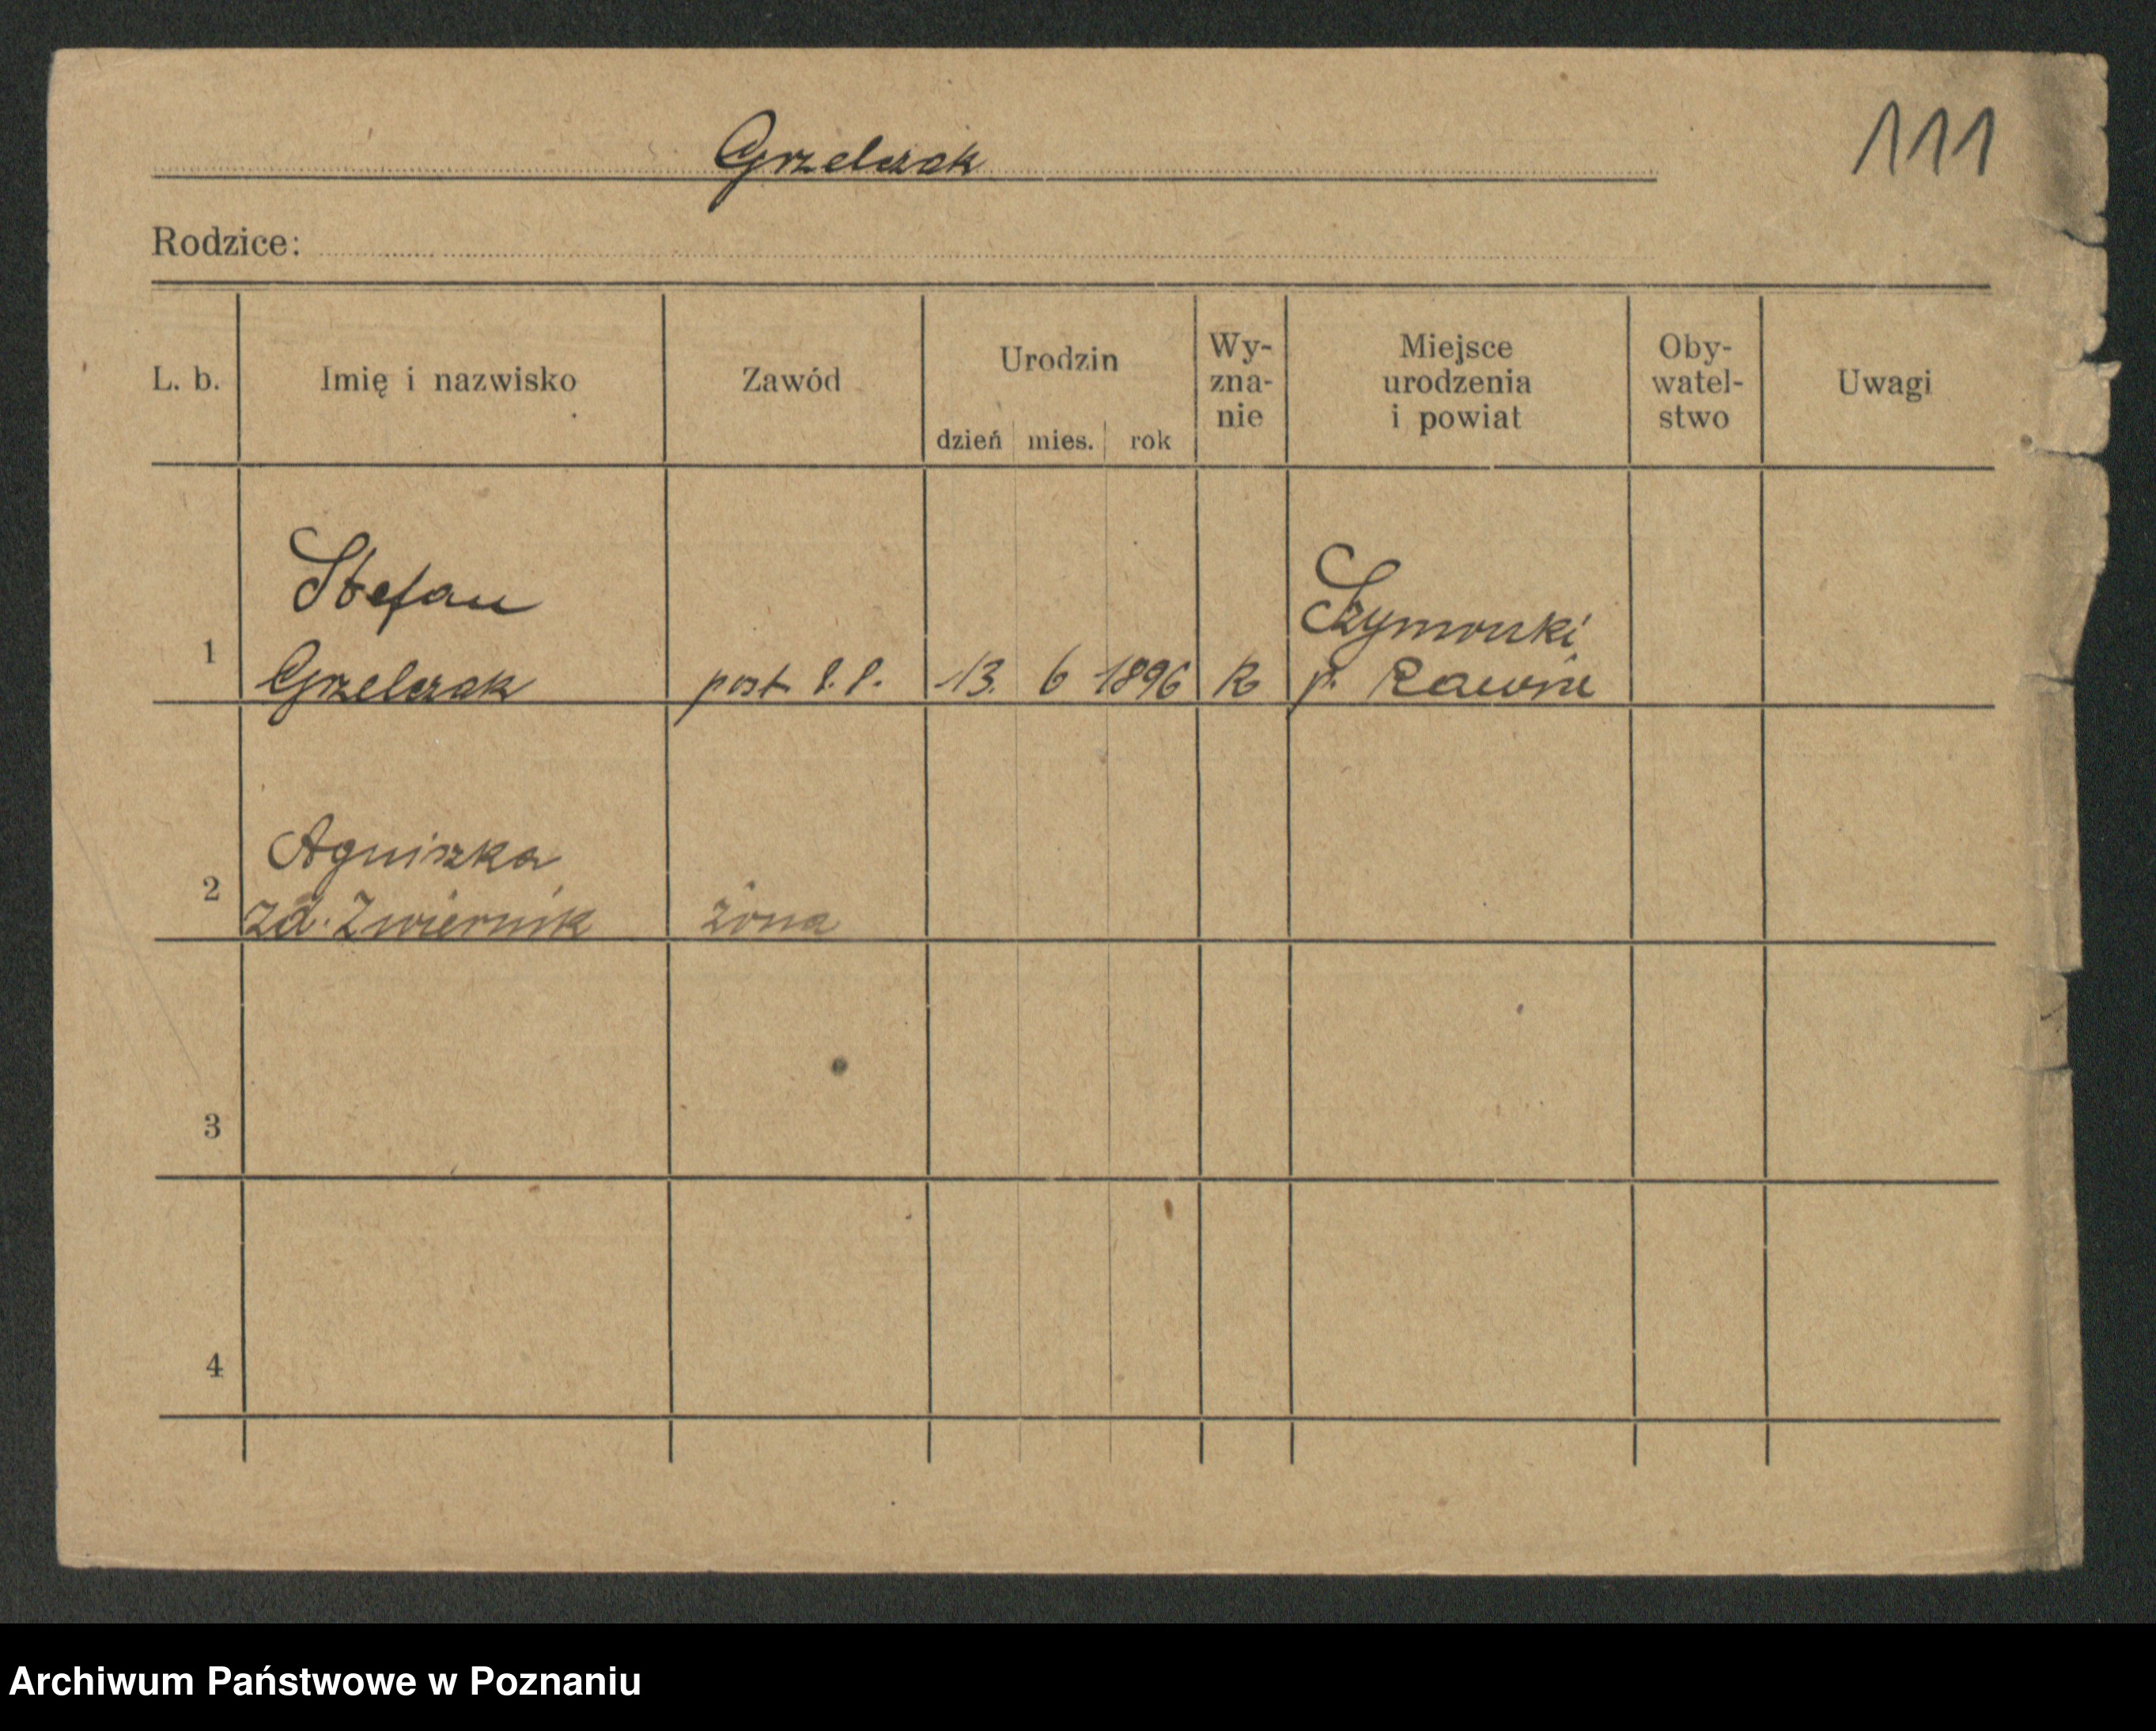 Grzelczak
111
Rodzice:
L. b.
Imię i nazwisko
Zawód
Urodzin
dzień mies. rok
Wy-
zna-
nie
Miejsce
urodzenia
i powiat
Oby-
watel-
stwo
Uwagi
Stefan
Szymonki
1 Grzelczak post. P.P. 13. 6 1896 R p. Rawicz
Agniszka
2 zd. Zwiernik żona
3
4
Archiwum Państwowe w Poznaniu